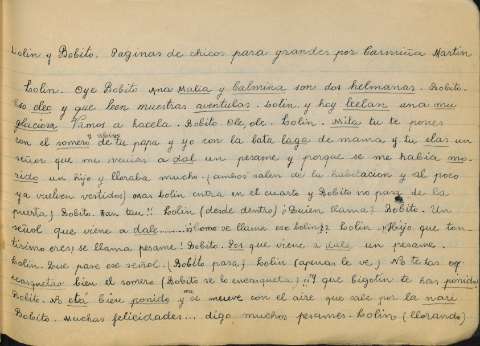 Lolin y Bobito. Paginas de chicos para grandes por Carmiña Martin
Lolin. Oye Bobito Ana Malia y Calmina son dos helmanas. Bobito.
Eso cleo y que leen nuestras aventulas. Lolin y hoy leelan una mu
glaciosa Vamos a hacela. Bobito. Ole, ole. Lolin. Mila tu te pones
con el somero y de tu papa y yo con la bata laga de mama y tu elas un
señor que me venias a dal un pesame y porque se me habia mo-
rido un hijo y lloraba mucho. (ambos salen de la habitacion y al poco
ya vuelven vestidos) mas Lolin entra en el cuarto y Bobito no pasa de la
puerta) Bobito. Tan tan!! Lolin (desde dentro) ¿Quien llama? Bobito. Un
señol que viene a dale..... ¿como se llama eso Lolin? Lolin. Hijo que ton-
tisimo eres; se llama pesame! Bobito. Pos que viene a dale un pesame.
Lolin. Que pase ese señol. (Bobito pasa) Lolin (apenas le ve) No te has en
casquetao bien el somero (Bobito se lo encasqueta) ¡¡Y que bigotin te has ponido!!
Bobito. No etá bien ponido y me se mueve con el aire que sale por la nari
Bobito. Muchas felicidades... digo muchos pesames. Lolin (llorando)